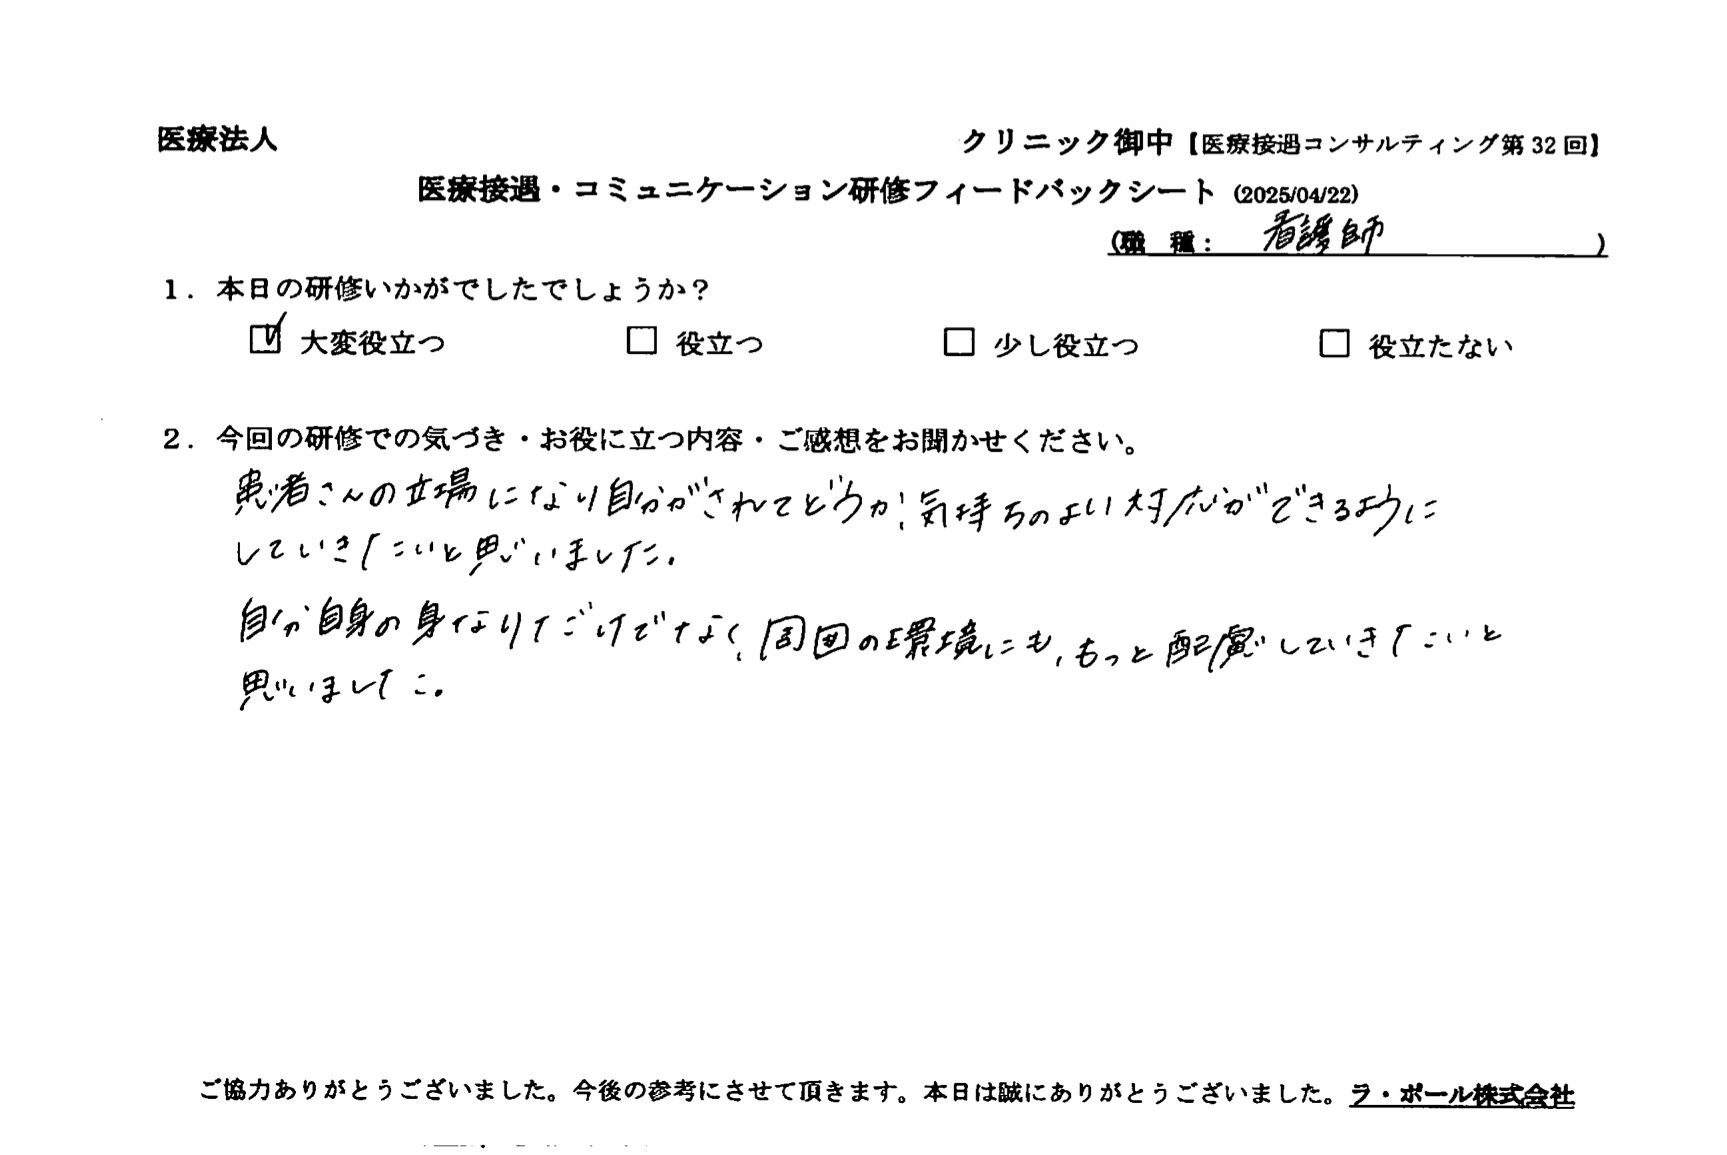 医療法人 クリニック御中【医療接遇コンサルティング第32回】
医療接遇・コミュニケーション研修フィードバックシート (2025/04/22)
(職 種: 看護師 )
1. 本日の研修いかがでしたでしょうか?
☑ 大変役立つ □ 役立つ □ 少し役立つ □ 役立たない
2. 今回の研修での気づき・お役に立つ内容・ご感想をお聞かせください。
患者さんの立場になり自分がされてどうか、気持ちのよい対応ができるように
していきたいと思いました。
自分自身の身なりだけでなく、周囲の環境にも、もっと配慮していきたいと
思いました。
ご協力ありがとうございました。今後の参考にさせて頂きます。本日は誠にありがとうございました。ラ・ポール株式会社